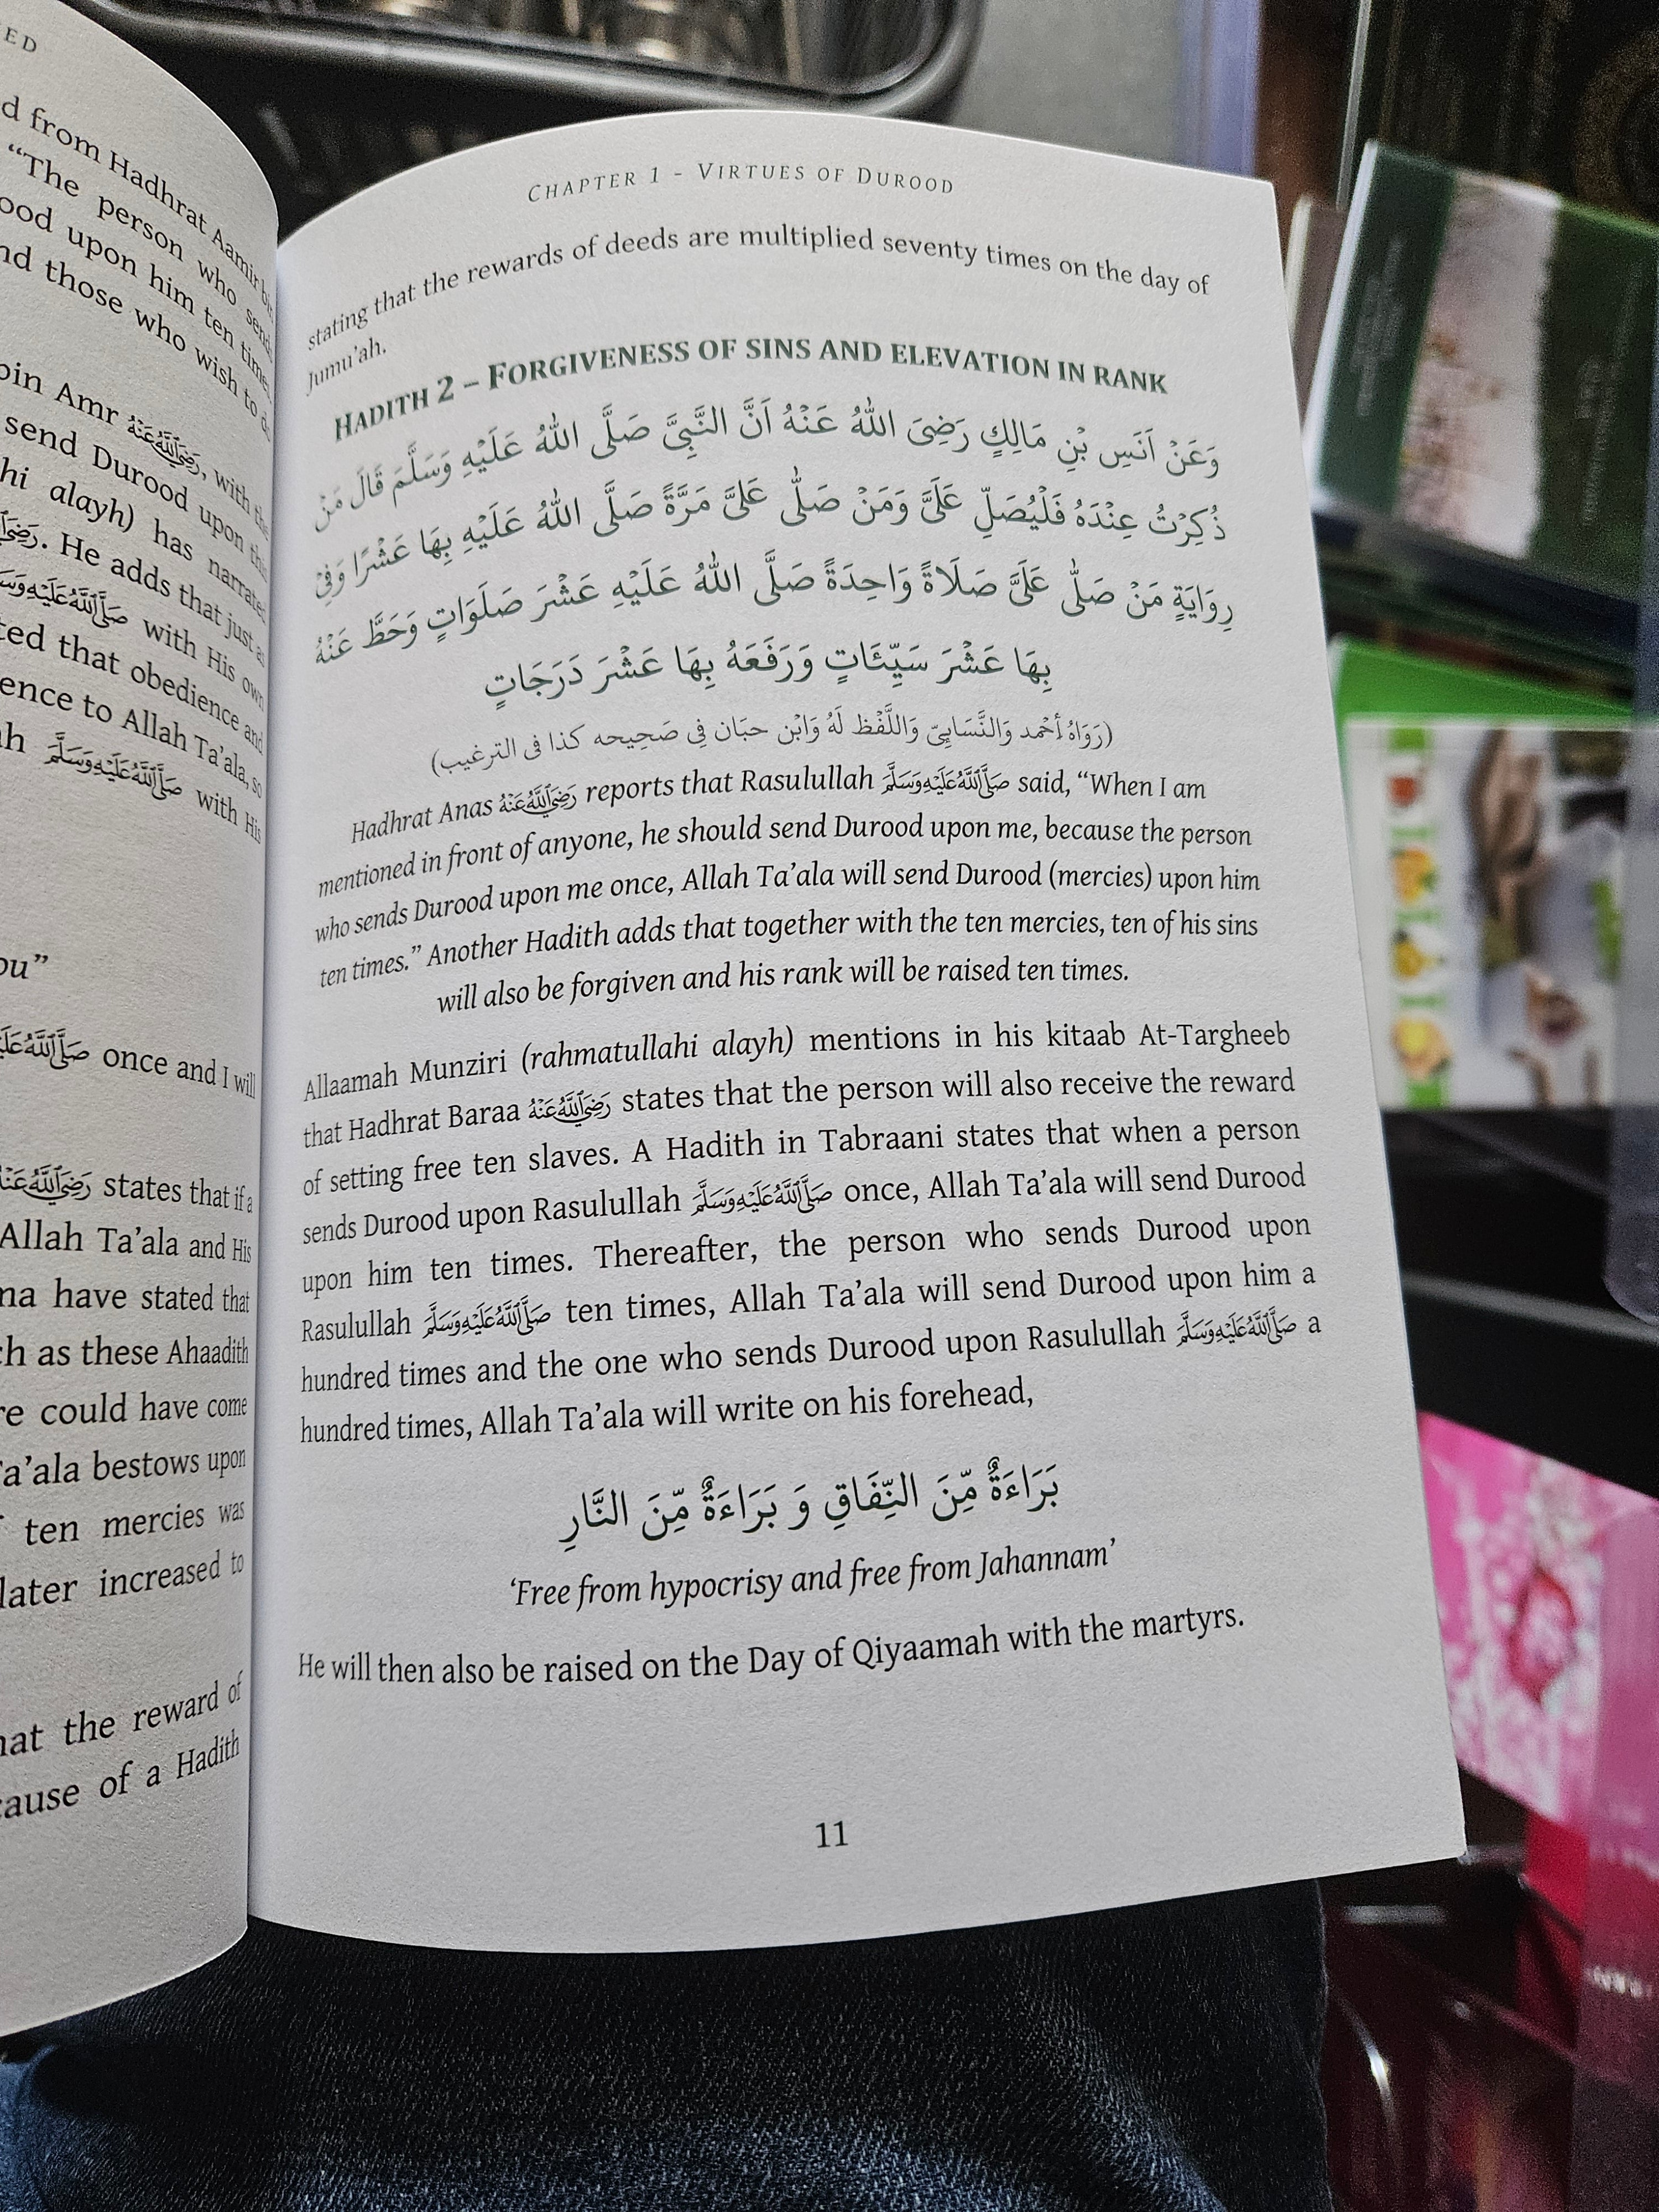 ED
d from Hadhrat Aamir
"The person who send
ood upon him ten times
nd those who wish to do
bin Amr رَضِيَ اللهُ عَنْهُ, with the
send Durood upon the
hi alayh) has narrated
. He adds that just as
صَلَّى اللهُ عَلَيْهِ وَسَلَّمَ with His own
ted that obedience and
ence to Allah Ta'ala, so
ah صَلَّى اللهُ عَلَيْهِ وَسَلَّمَ with His
ou"
صَلَّى اللهُ عَلَيْهِ وَسَلَّمَ once and I will
رَضِيَ اللهُ عَنْهُ states that if a
Allah Ta'ala and His
ma have stated that
ch as these Ahaadith
re could have come
Ta'ala bestows upon
ten mercies was
later increased to
hat the reward of
cause of a Hadith
CHAPTER 1 – VIRTUES OF DUROOD
stating that the rewards of deeds are multiplied seventy times on the day of
Jumu'ah.
HADITH 2 – FORGIVENESS OF SINS AND ELEVATION IN RANK
وَعَنْ اَنَسِ بْنِ مَالِكٍ رَضِىَ اللهُ عَنْهُ اَنَّ النَّبِىَّ صَلَّى اللهُ عَلَيْهِ وَسَلَّمَ قَالَ مَنْ
ذُكِرْتُ عِنْدَهُ فَلْيُصَلِّ عَلَىَّ وَمَنْ صَلّٰى عَلَىَّ مَرَّةً صَلَّى اللهُ عَلَيْهِ بِهَا عَشْرًا وَفِىْ
رِوَايَةٍ مَنْ صَلّٰى عَلَىَّ صَلَاةً وَاحِدَةً صَلَّى اللهُ عَلَيْهِ عَشْرَ صَلَوَاتٍ وَحَطَّ عَنْهُ
بِهَا عَشْرَ سَيِّئَاتٍ وَرَفَعَهُ بِهَا عَشْرَ دَرَجَاتٍ
(رَوَاهُ أَحْمد وَالنَّسَايِىّ وَاللَّفْظ لَهُ وَابْن حبَان فِى صَحِيحه كذا فى الترغيب)
Hadhrat Anas رَضِيَ اللهُ عَنْهُ reports that Rasulullah صَلَّى اللهُ عَلَيْهِ وَسَلَّمَ said, "When I am
mentioned in front of anyone, he should send Durood upon me, because the person
who sends Durood upon me once, Allah Ta'ala will send Durood (mercies) upon him
ten times." Another Hadith adds that together with the ten mercies, ten of his sins
will also be forgiven and his rank will be raised ten times.
Allaamah Munziri (rahmatullahi alayh) mentions in his kitaab At-Targheeb
that Hadhrat Baraa رَضِيَ اللهُ عَنْهُ states that the person will also receive the reward
of setting free ten slaves. A Hadith in Tabraani states that when a person
sends Durood upon Rasulullah صَلَّى اللهُ عَلَيْهِ وَسَلَّمَ once, Allah Ta'ala will send Durood
upon him ten times. Thereafter, the person who sends Durood upon
Rasulullah صَلَّى اللهُ عَلَيْهِ وَسَلَّمَ ten times, Allah Ta'ala will send Durood upon him a
hundred times and the one who sends Durood upon Rasulullah صَلَّى اللهُ عَلَيْهِ وَسَلَّمَ a
hundred times, Allah Ta'ala will write on his forehead,
بَرَاءَةٌ مِّنَ النِّفَاقِ وَ بَرَاءَةٌ مِّنَ النَّارِ
'Free from hypocrisy and free from Jahannam'
He will then also be raised on the Day of Qiyaamah with the martyrs.
11